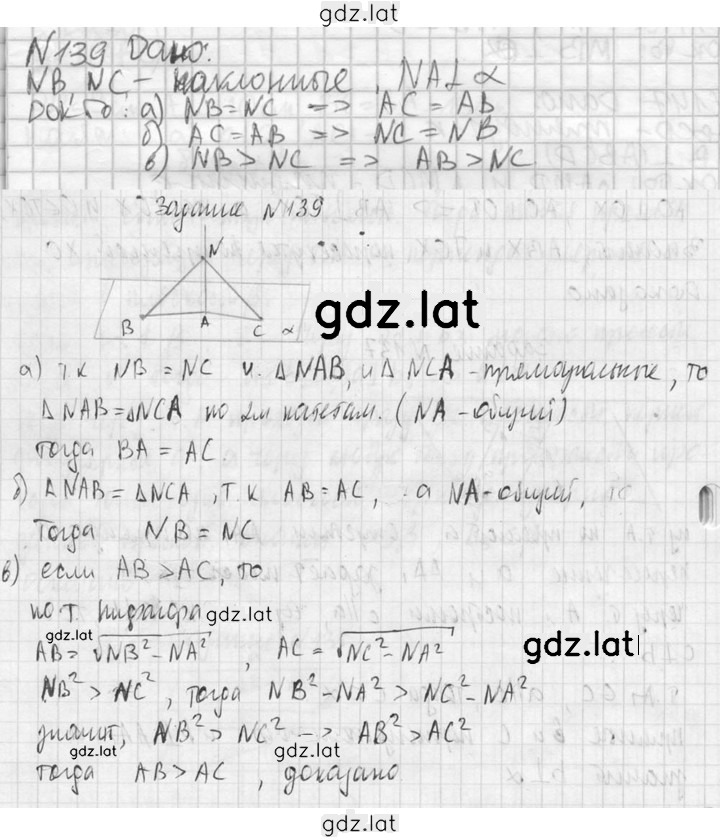 gdz.lat
N139 Дано:
NB, NC, - наклонные, NA⊥α
Док-ть: а) NB=NC => AC=AB
б) AC=AB => NC=NB
в) NB>NC => AB>NC
Задание N139
N
B A C α
gdz.lat
а) т к NB = NC и ΔNAB, и ΔNCA - прямоугольные, то
ΔNAB=ΔNCA по 2м катетам. (NA-общий)
тогда BA = AC
б) ΔNAB = ΔNCA, т.к AB=AC, а NA-общий, то
тогда NB = NC
в) если AB>AC, то
по т. пифагора
gdz.lat
AB=√NB²-NA², AC=√NC²-NA²
gdz.lat
NB²>NC², тогда NB²-NA²>NC²-NA²
значит, NB²>NC² -> AB²>AC²
gdz.lat
тогда AB>AC, доказано.
gdz.lat